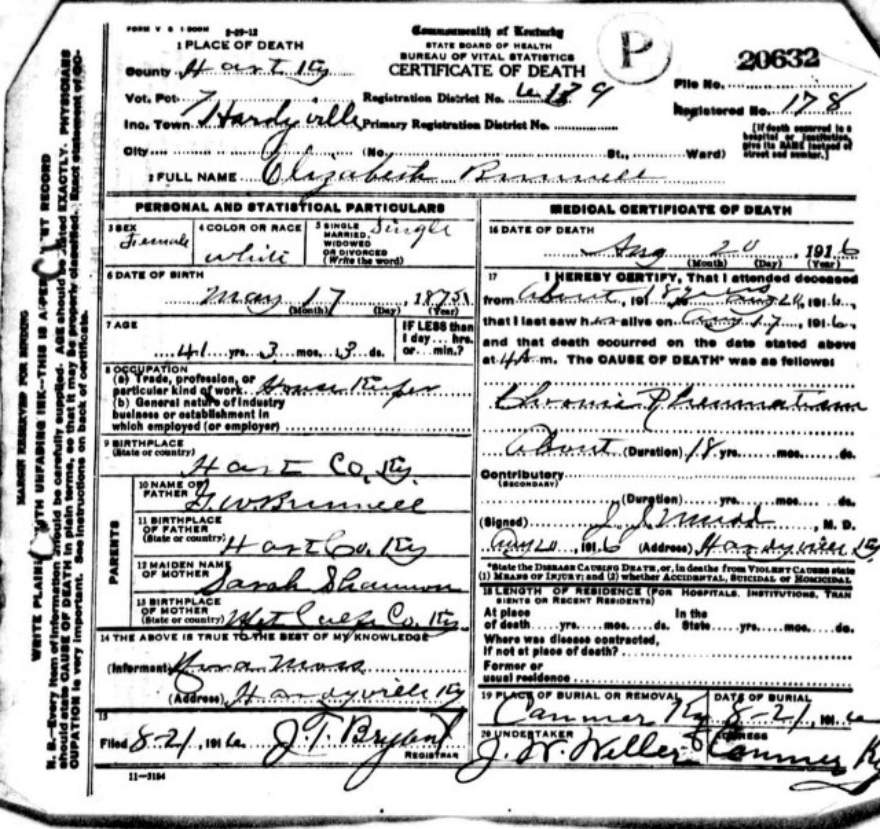 FORM V S 1 500M 2-29-12
Commonwealth of Kentucky
STATE BOARD OF HEALTH
BUREAU OF VITAL STATISTICS
CERTIFICATE OF DEATH
P
20632
1 PLACE OF DEATH
County Hart Ky
File No.
Vot. Pct. 7
Registration District No.
Registered No. 178
Inc. Town Hardyville Primary Registration District No.
[If death occurred in a hospital or institution, give its NAME instead of street and number.]
City (No. St., Ward)
2 FULL NAME Elizabeth Brunnell
MARGIN RESERVED FOR BINDING
WRITE PLAINLY WITH UNFADING INK—THIS IS A PERMANENT RECORD
N. B.—Every item of information should be carefully supplied. AGE should be stated EXACTLY. PHYSICIANS
should state CAUSE OF DEATH in plain terms, so that it may be properly classified. Exact statement of OC-
CUPATION is very important. See instructions on back of certificate.
PERSONAL AND STATISTICAL PARTICULARS
3 SEX Female
4 COLOR OR RACE white
5 SINGLE MARRIED, WIDOWED OR DIVORCED (Write the word) Single
6 DATE OF BIRTH
May 17, 1875
(Month) (Day) (Year)
7 AGE
41 yrs. 3 mos. 3 ds.
IF LESS than 1 day... hrs. or... min.?
8 OCCUPATION
(a) Trade, profession, or particular kind of work House Keeper
(b) General nature of industry business or establishment in which employed (or employer)
9 BIRTHPLACE
(State or country)
Hart Co. Ky.
PARENTS
10 NAME OF FATHER G. W Brunnell
11 BIRTHPLACE OF FATHER
(State or country) Hart Co. Ky
12 MAIDEN NAME OF MOTHER Sarah Shannon
13 BIRTHPLACE OF MOTHER
(State or country) Co. Ky.
14 THE ABOVE IS TRUE TO THE BEST OF MY KNOWLEDGE
(Informant) Moss
(Address) Hardyville Ky
15
Filed 8-21, 1916. J. T. Bryant
REGISTRAR
11—3184
MEDICAL CERTIFICATE OF DEATH
16 DATE OF DEATH
Aug 20, 1916
(Month) (Day) (Year)
17 I HEREBY CERTIFY, That I attended deceased
from About, 191 18 years Aug 20, 1916.,
that I last saw her alive on Aug 17, 1916.,
and that death occurred on the date stated above
at 4 A m. The CAUSE OF DEATH* was as follows:
Chronic Rheumatism
About (Duration) 18 yrs. mos. ds.
Contributory
(SECONDARY)
(Duration) yrs. mos. ds.
(Signed) J. J. Moss, M. D.
Aug 20, 1916 (Address) Hardyville Ky
*State the DISEASE CAUSING DEATH, or, in deaths from VIOLENT CAUSES state
(1) MEANS OF INJURY; and (2) whether ACCIDENTAL, SUICIDAL or HOMICIDAL
18 LENGTH OF RESIDENCE (FOR HOSPITALS, INSTITUTIONS, TRAN
SIENTS OR RECENT RESIDENTS)
At place of death yrs. mos. ds. In the State yrs. mos. ds.
Where was disease contracted,
if not at place of death?
Former or
usual residence
19 PLACE OF BURIAL OR REMOVAL Canmer Ky
DATE OF BURIAL 8-21, 1916
20 UNDERTAKER J. W. Weller
ADDRESS Canmer Ky